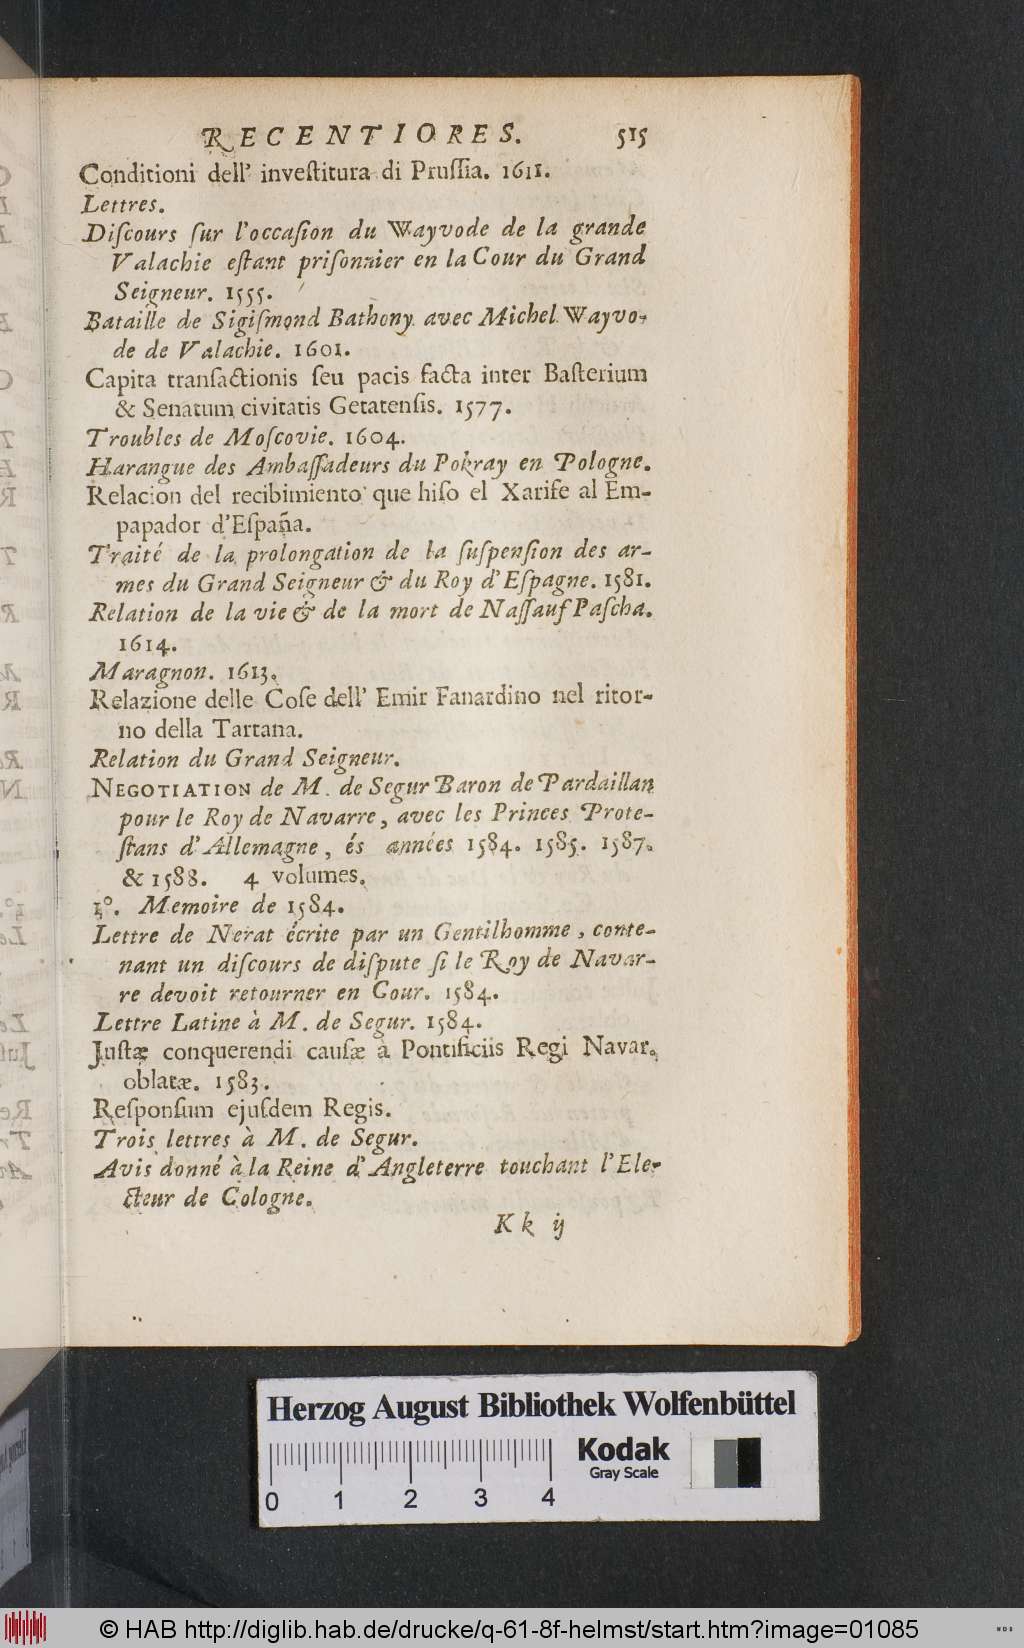 RECENTIORES. 515
Conditioni dell' inveſtitura di Pruſſia. 1611.
Lettres.
Diſcours ſur l'occaſion du Wayvode de la grande
Valachie eſtant priſonnier en la Cour du Grand
Seigneur. 1555.
Bataille de Sigiſmond Bathony avec Michel Wayvo-
de de Valachie. 1601.
Capita tranſactionis ſeu pacis facta inter Baſterium
& Senatum civitatis Getatenſis. 1577.
Troubles de Moſcovie. 1604.
Harangue des Ambaſſadeurs du Pokray en Pologne.
Relacion del recibimiento que hiſo el Xarife al Em-
papador d'Eſpaña.
Traité de la prolongation de la ſuſpenſion des ar-
mes du Grand Seigneur & du Roy d'Eſpagne. 1581.
Relation de la vie & de la mort de Naſſauf Paſcha.
1614.
Maragnon. 1613.
Relazione delle Coſe dell' Emir Fanardino nel ritor-
no della Tartana.
Relation du Grand Seigneur.
NEGOTIATION de M. de Segur Baron de Pardaillan
pour le Roy de Navarre, avec les Princes Prote-
ſtans d'Allemagne, és années 1584. 1585. 1587.
& 1588. 4 volumes.
1°. Memoire de 1584.
Lettre de Nerat écrite par un Gentilhomme, conte-
nant un diſcours de diſpute ſi le Roy de Navar-
re devoit retourner en Cour. 1584.
Lettre Latine à M. de Segur. 1584.
Juſtæ conquerendi cauſæ à Pontificiis Regi Navar.
oblatæ. 1583.
Reſponſum ejuſdem Regis.
Trois lettres à M. de Segur.
Avis donné à la Reine d'Angleterre touchant l'Ele-
cteur de Cologne.
Kk ij
Herzog August Bibliothek Wolfenbüttel
Kodak
Gray Scale
0 1 2 3 4
© HAB http://diglib.hab.de/drucke/q-61-8f-helmst/start.htm?image=01085